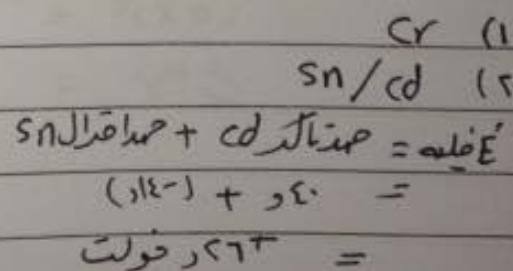 ١) Cr
٢) Sn/Cd
E° خلية = جهد تأكسد Cd + جهد اختزال Sn
= ٤٠و + (-١٤و)
= +٢٦و فولت